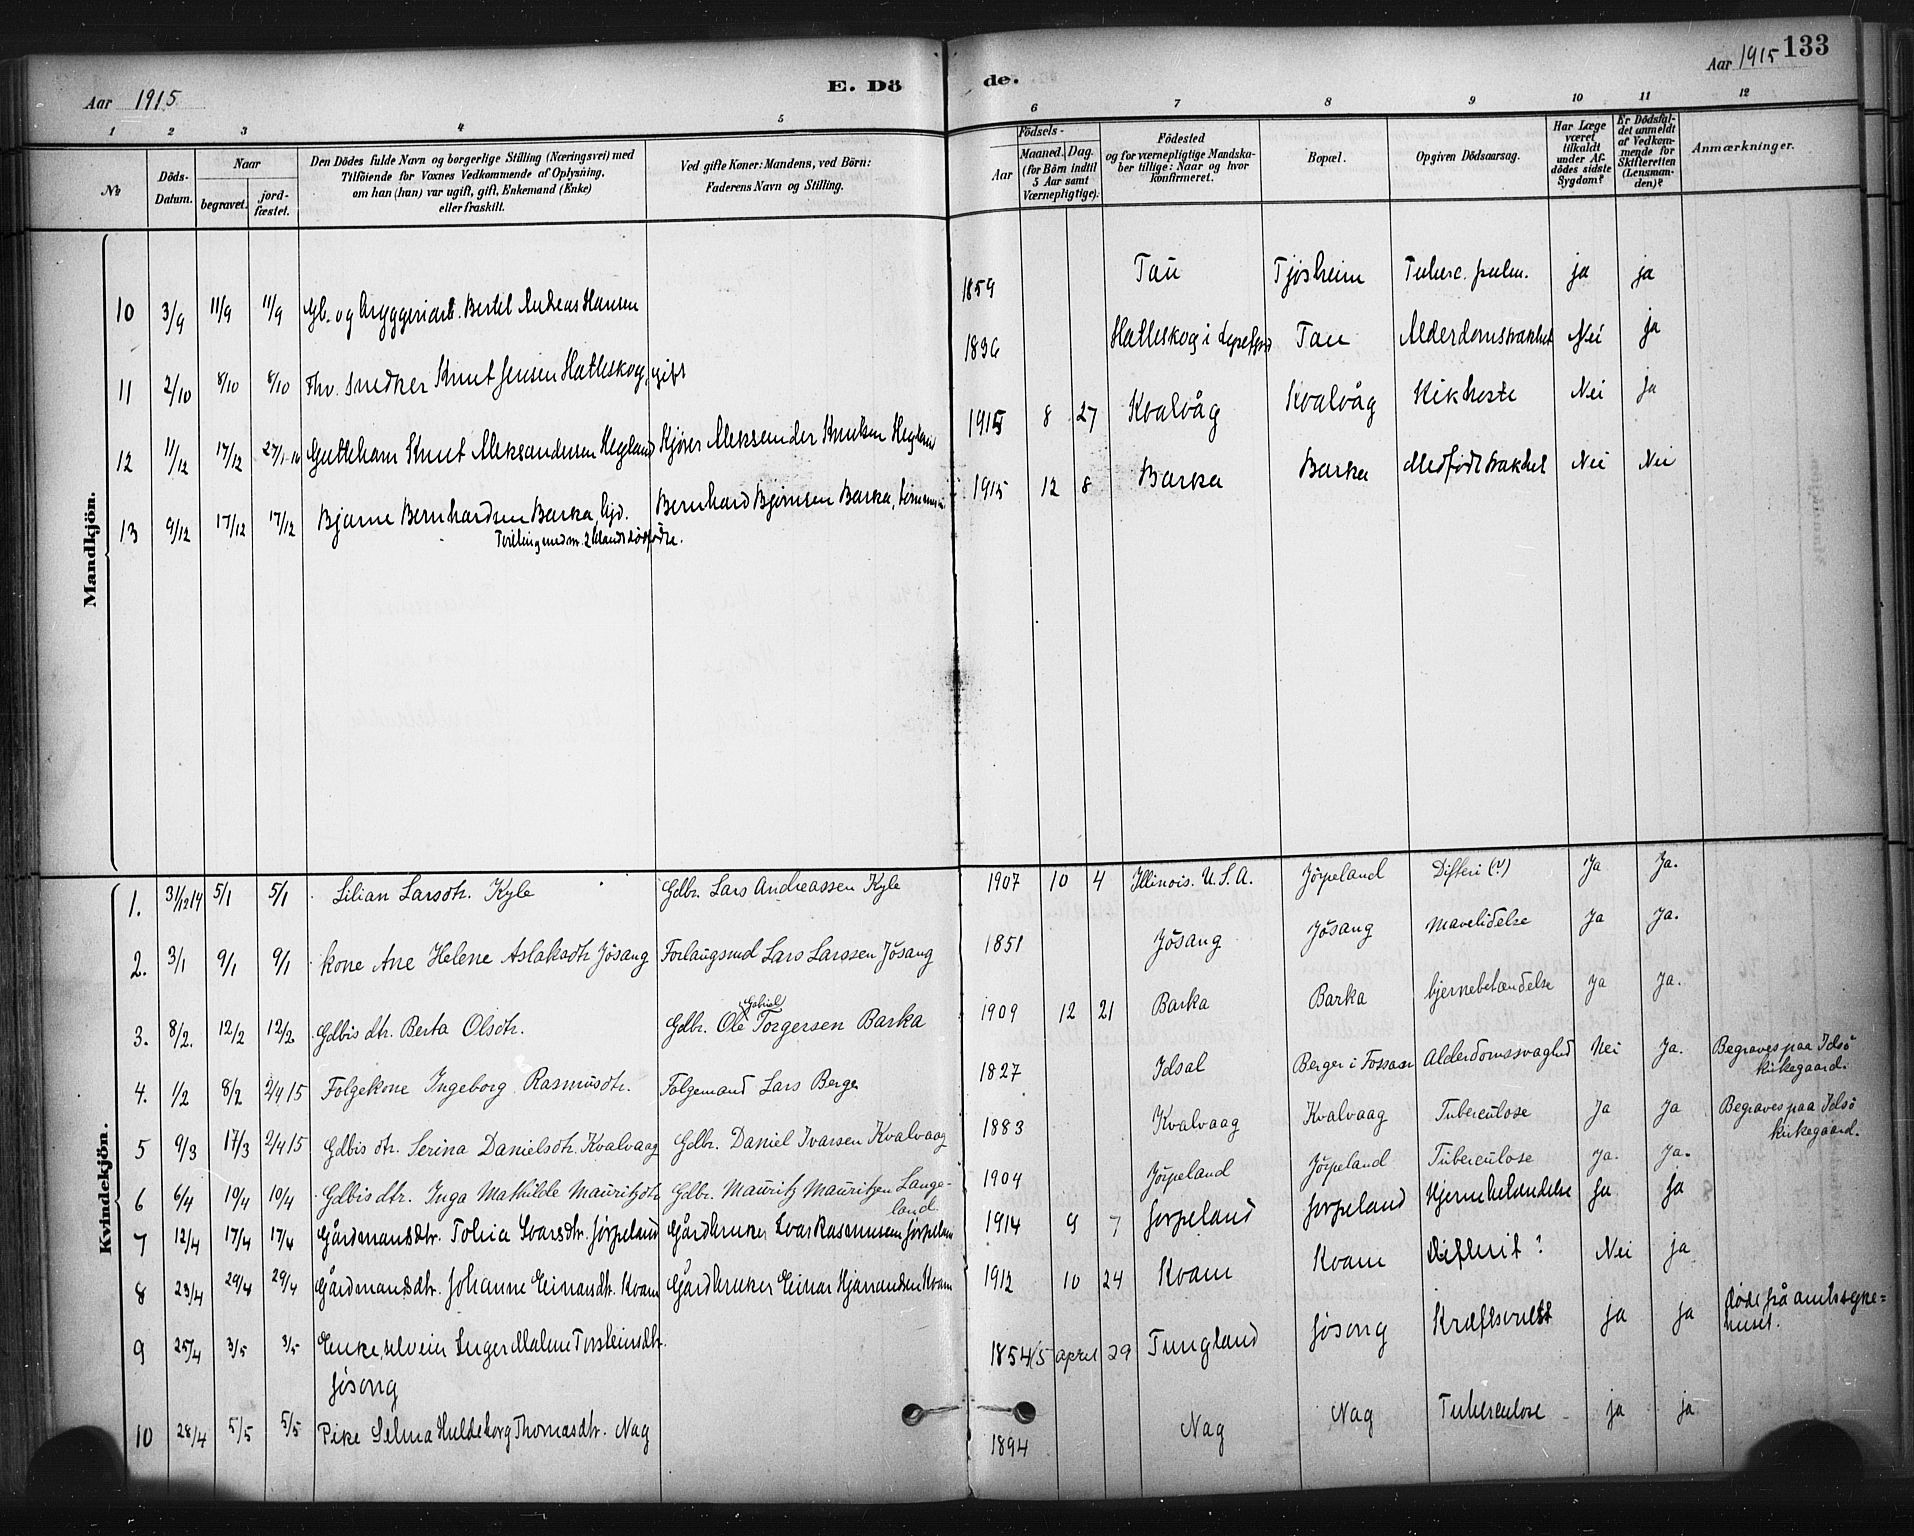 Aar 1915
E. Dö
de.
Aar 1915 133
1 2 3 4 5 6 7 8 9 10 11 12
No
Döds-Datum.
Naar
begravet.
jord-fæstet.
Den Dödes fulde Navn og borgerlige Stilling (Næringsvei) med
Tilföiende for Voxnes Vedkommende af Oplysning,
om han (hun) var ugift, gift, Enkemand (Enke)
eller fraskilt.
Ved gifte Koner: Mandens, ved Börn:
Faderens Navn og Stilling.
Födsels-
Aar
Maaned. Dag.
(for Börn indtil
5 Aar samt
Værnepligtige).
Födested
og for værnepligtige Mandska-
ber tillige: Naar og hvor
konfirmeret.
Bopæl.
Opgiven Dödsaarsag.
Har Læge
været
tilkaldt
under Af-
dödes sidste
Sygdom?
Er Dödsfal-
det anmeldt
af Vedkom-
mende for
Skifteretten
(Lensman-
den)?
Anmærkninger.
Mandkjön.
10 3/9 11/9 11/9 Gb. og bryggeriarb. Bertel Andreas Hansen 1859 Tau Tjøsheim Tuberc. pulm. ja ja
11 2/10 8/10 8/10 Fhv. snedker Knut Jensen Hatleskog, gift 1836 Hatleskog i Tau Alderdomssvakhet Nei ja
12 11/12 17/12 27/1-16 Guttebarn Knut Aleksandersen Hegland Kjører Aleksander Knutsen Hegland 1915 8 27 Kvalvåg Kvalvåg Kikhoste Nei ja
13 9/12 17/12 17/12 Bjarne Bernhardsen Barka, Bernhard Bjørnsen Barka, 1915 12 8 Barka Barka Medfødt svakhet Nei Nei
Tvilling med nr. 2 blandt dødfødte.
Kvindekjön.
1. 31/12 14 5/1 5/1 Lilian Larsdtr. Kyle Gdbr. Lars Andreassen Kyle 1907 10 4 Illinois. U.S.A. Jörpeland Difteri (?) Ja Ja.
2. 3/1 9/1 9/1 kone Ane Helene Aslaksdtr Jösang Forlaugsmd Lars Larssen Jösang 1851 Jösang Jösang Mavelidelse Ja Ja.
3. 8/2. 12/2 12/2 Gdbis dtr. Berta Olsdtr. Gdbr. Ole Gabriel Torgersen Barka 1909 12 21 Barka Barka hjernebetændelse Ja Ja.
4. 1/2 8/2 2/4 15 Folgekone Ingeborg Rasmusdtr. Folgemand Lars Berge 1827 Idsal Berger i Fossan Alderdomssvaghed Nei Ja. Begraves paa Idsö
kirkegaard.
5 9/3 17/3 2/4 15 Gdbis dtr. Serina Danielsdtr. Kvalvaag Gdbr. Daniel Ivarsen Kvalvaag 1883 Kvalvaag Kvalvaag Tuberculose Ja Ja Begraves paa Idsö
kirkegaard.
6 6/4 10/4 10/4 Gdbis dtr. Inga Mathilde Mauritzdtr Gdbr. Mauritz Mauritzen Lange-
land. 1904 Jörpeland Jörpeland Tuberculose Ja. Ja.
7 12/4 17/4 17/4 Gårdmandsdtr. Tolia Ivarsdtr. Jørpeland Gårdbruker Ivar Rasmussen Jørpeland 1914 9 7 Jørpeland Jørpeland Hjernebetændelse Ja Ja
8 23/4 29/4 29/4 Gårdmandsdtr. Johanne Einarsdtr. Kvam Gårdbruker Einar Hjarrandsen Kvam 1912 10 24 Kvam Kvam Difterit? Nei ja
9 25/4 3/5 3/5 Enke, selveier Inger Malene Torsteinsdtr.
Jøsong 1854 4/5 april 29 Tungland Jøsong Kræftsvulst ja ja døde på amtssyke=
huset.
10 28/4 5/5 5/5 Pike Selma Huldeborg Thomasdtr. Nag 1894 Nag Nag Tuberculose ja ja